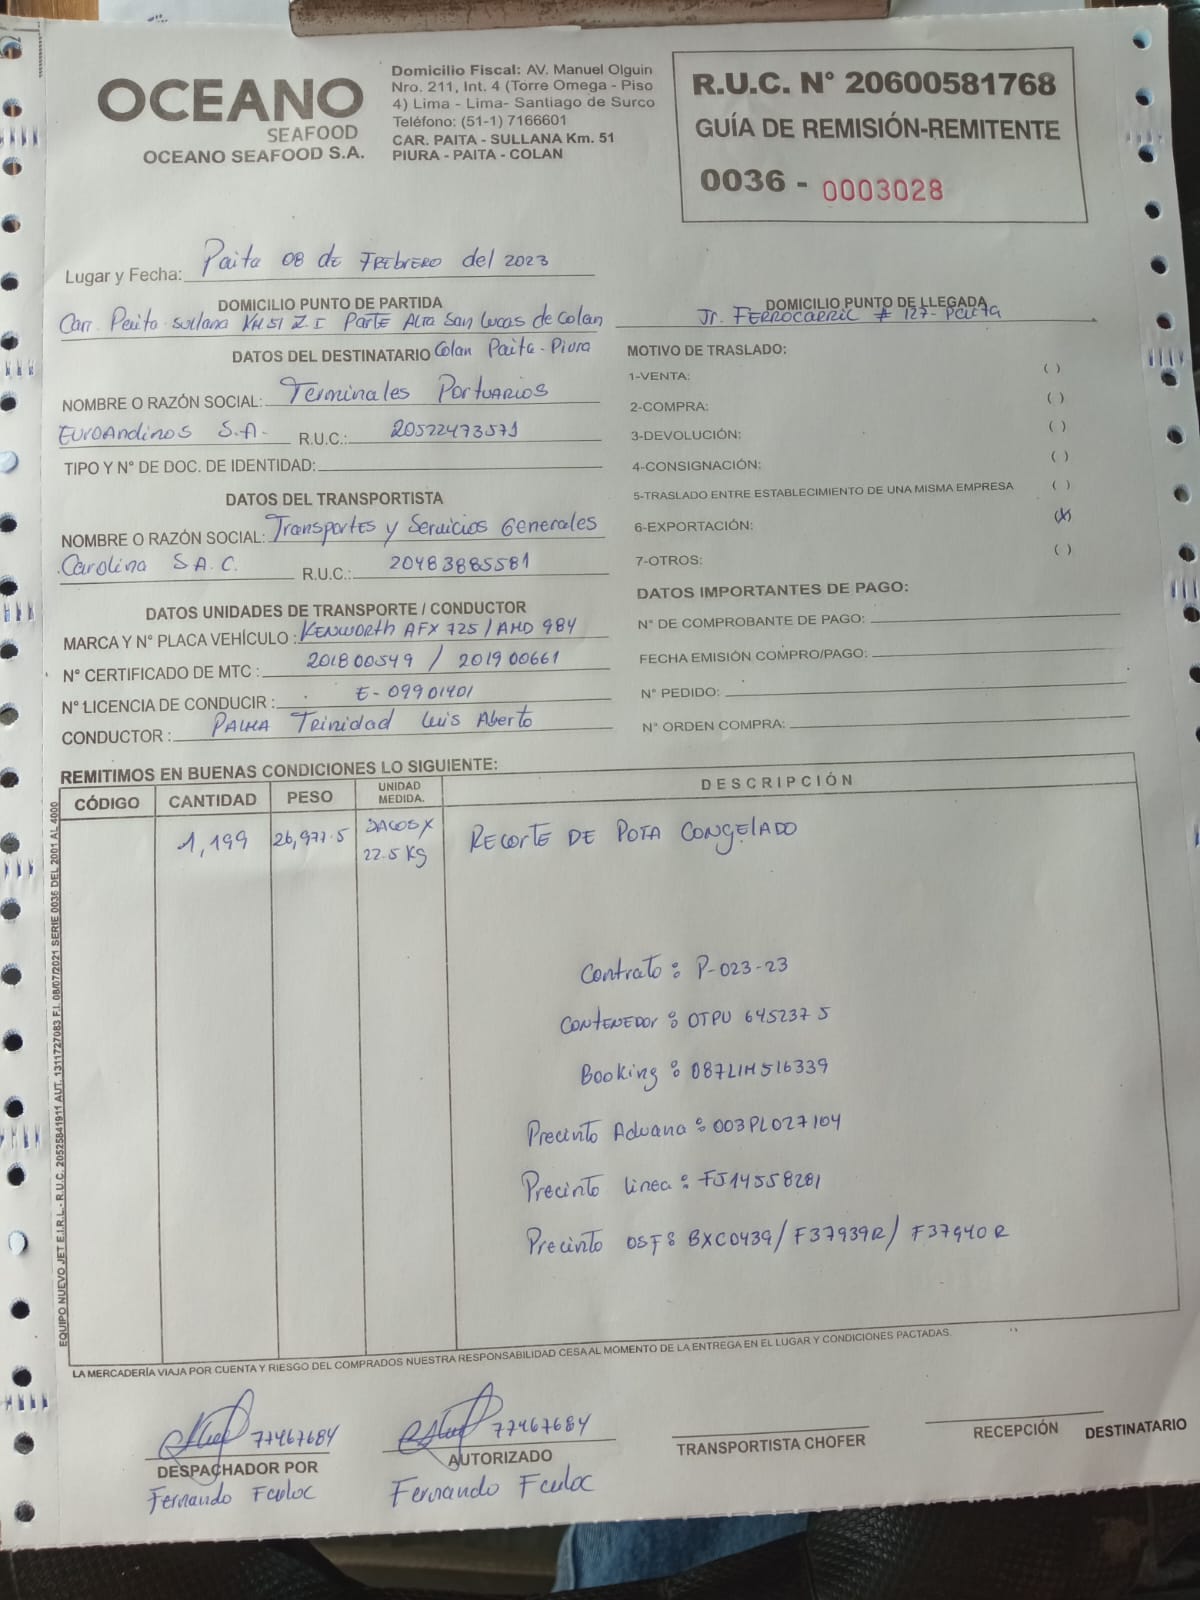 OCEANO
SEAFOOD
OCEANO SEAFOOD S.A.
Domicilio Fiscal: AV. Manuel Olguin
Nro. 211, Int. 4 (Torre Omega - Piso
4) Lima - Lima- Santiago de Surco
Teléfono: (51-1) 7166601
CAR. PAITA - SULLANA Km. 51
PIURA - PAITA - COLAN
R.U.C. N° 20600581768
GUÍA DE REMISIÓN-REMITENTE
0036 - 0003028
Lugar y Fecha: Paita 08 de FREbrERO del 2023
DOMICILIO PUNTO DE PARTIDA
Carr. Paita Sullana KM 51 Z.I Parte Alta San Lucas de Colan
Colan Paita - Piura
DOMICILIO PUNTO DE LLEGADA
Jr. FERROCARRIL # 127- Paita
DATOS DEL DESTINATARIO
NOMBRE O RAZÓN SOCIAL: Terminales PortuARIOS
EuroAndinos S.A. R.U.C.: 20522473571
TIPO Y N° DE DOC. DE IDENTIDAD:
DATOS DEL TRANSPORTISTA
NOMBRE O RAZÓN SOCIAL: Transportes y Servicios Generales
Carolina S.A.C. R.U.C.: 20483885581
DATOS UNIDADES DE TRANSPORTE / CONDUCTOR
MARCA Y N° PLACA VEHÍCULO : KENWORTH AFX 725 / AMD 984
N° CERTIFICADO DE MTC : 201800549 / 201900661
N° LICENCIA DE CONDUCIR : E- 09901401
CONDUCTOR : PALMA Trinidad Luis Aberto
MOTIVO DE TRASLADO:
1-VENTA: ( )
2-COMPRA: ( )
3-DEVOLUCIÓN: ( )
4-CONSIGNACIÓN: ( )
5-TRASLADO ENTRE ESTABLECIMIENTO DE UNA MISMA EMPRESA ( )
6-EXPORTACIÓN: (X)
7-OTROS: ( )
DATOS IMPORTANTES DE PAGO:
N° DE COMPROBANTE DE PAGO:
FECHA EMISIÓN COMPRO/PAGO:
N° PEDIDO:
N° ORDEN COMPRA:
REMITIMOS EN BUENAS CONDICIONES LO SIGUIENTE:
CÓDIGO CANTIDAD PESO UNIDAD MEDIDA. DESCRIPCIÓN
1,199 26,977.5 SACOS X 22.5 Kg RECORTE DE POTA CONGELADO
Contrato : P-023-23
CONTENEDOR : OTPU 645237 5
Booking : 087LIM516339
Precinto Aduana : 003PL027104
Precinto linea : FJ14558281
Precinto OSF : BXC0439 / F37939R / F37940R
EQUIPO NUEVO JET E.I.R.L.- R.U.C. 20525841911 AUT. 1311727083 F.I. 08/07/2021 SERIE 0036 DEL 2001 AL 4000
LA MERCADERÍA VIAJA POR CUENTA Y RIESGO DEL COMPRADOS NUESTRA RESPONSABILIDAD CESA AL MOMENTO DE LA ENTREGA EN EL LUGAR Y CONDICIONES PACTADAS.
77467684
DESPACHADOR POR
Fernando
77467684
AUTORIZADO
Fernando
TRANSPORTISTA CHOFER
RECEPCIÓN DESTINATARIO